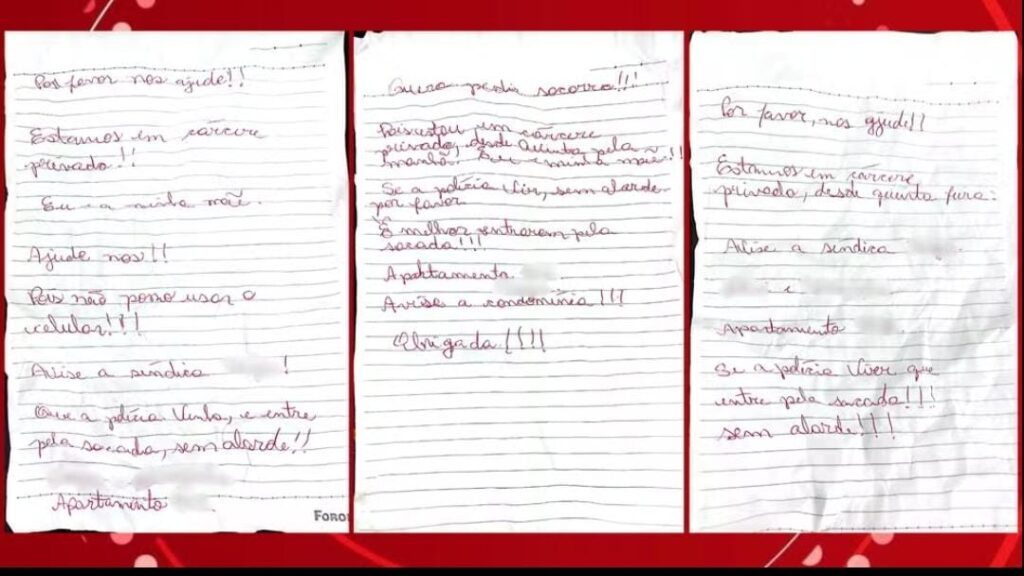 Por favor nos ajude!!
Estamos em cárcere
privado!!
Eu e a minha mãe.
Ajude nos!!
Pois não posso usar o
celular!!!
Avise a síndica !
Que a polícia venha, e entre
pela sacada, sem alarde!!
Apartamento
FORON
Quero pedir socorro!!!
Pois estou em cárcere
privado, desde Quinta pela
manhã. Eu e minha mãe!!
Se a polícia vir, sem alarde
por favor
É melhor entrarem pela
sacada!!!
Apartamento
Avise a condomínia!!!
Obrigada!!!!
Por favor, nos ajude!!
Estamos em cárcere
privado, desde quinta feira:
Avise a síndica
e
Apartamento
Se a polícia vier que
entre pela sacada!!!
sem alarde!!!